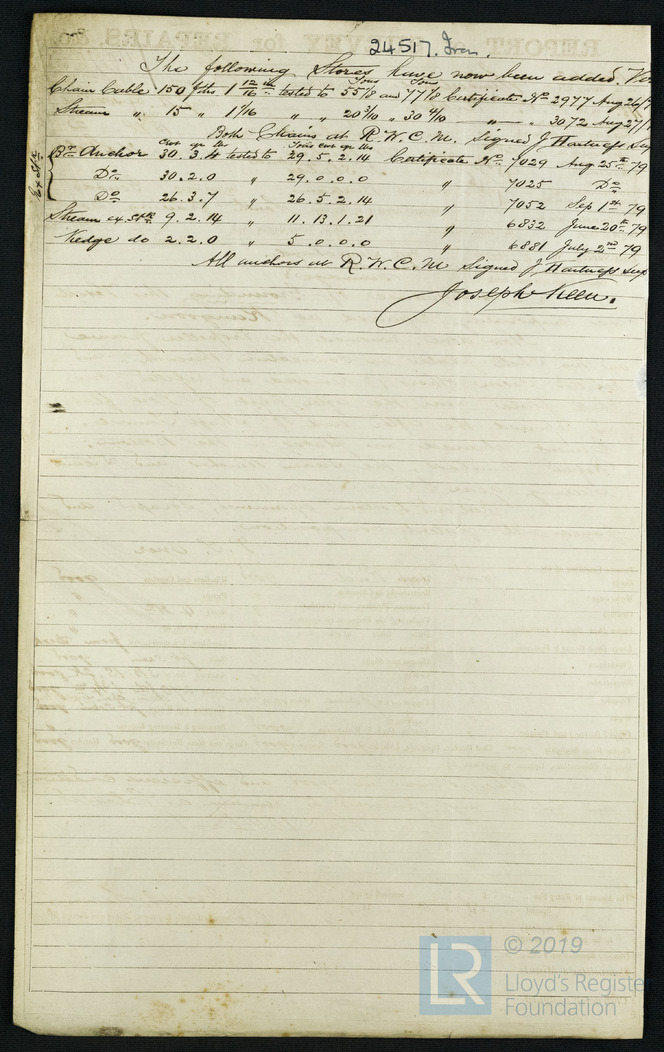 24517. Iron.
The following Stores have now been added.
Chain Cable 150 fths 1 12/16 tested to 55 1/8 and 77 1/8 Certificate No 2977 Aug 26/7
Tons Tons
Stream " 15 " 1 1/16 " " 20 3/10 " 30 4/10 " " 3072 Aug 27/
Both Chains at R.W.C.M. Signed J Hartness Sup
Cwt qrs lbs Tons cwt qrs lbs
Br Anchor 30.3.4 tested to 29.5.2.14 Certificate No. 7029 Aug 25th 79
Do 30.2.0 " 29.0.0.0 " 7025 Do
Do 26.3.7 " 26.5.2.14 " 7052 Sep 1st 79
Ex Stk
Stream ex. Stk 9.2.14 " 11.13.1.21 " 6832 June 20th 79
Kedge do 2.2.0 " 5.0.0.0 " 6881 July 2nd 79
All anchors at R.W.C.M Signed J Hartness Sup
Joseph Keen.
LR
© 2019
Lloyd's Register
Foundation